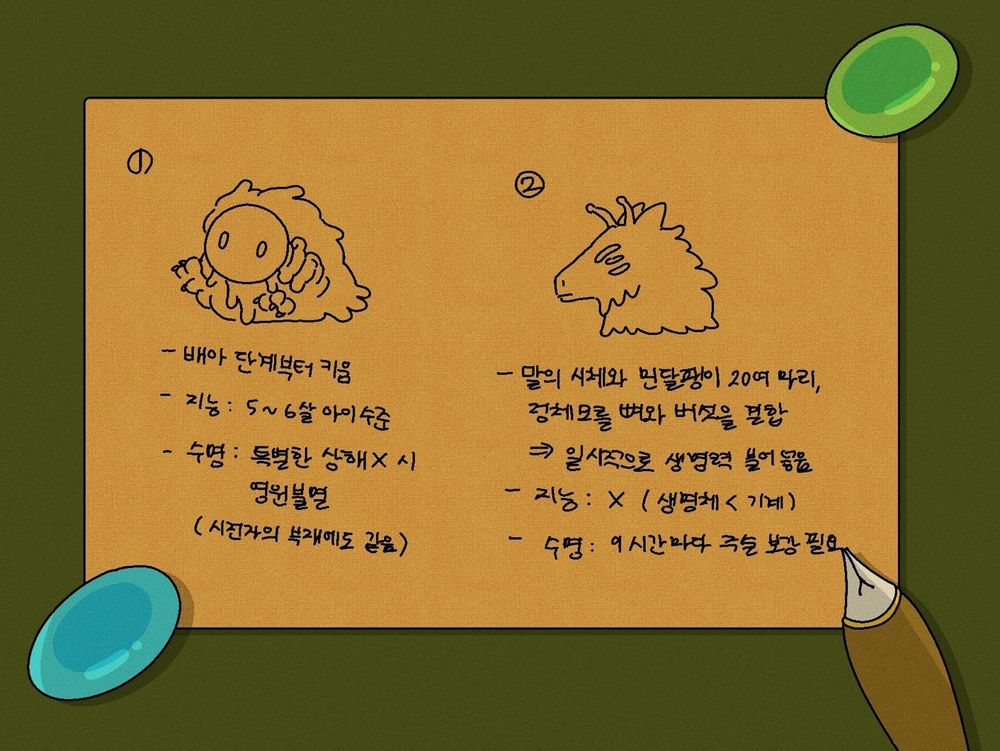 ①
- 배아 단계부터 키움
- 지능 : 5~6살 아이 수준
- 수명 : 특별한 상해 X 시
영원불멸
(시전자의 부재에도 같음)
②
- 말의 시체와 민달팽이 20여 마리,
정체모를 뼈와 버섯을 혼합
⇒ 일시적으로 생명력 불어 넣음
- 지능 : X (생명체 < 기계)
- 수명 : 9시간마다 주술 보강 필요